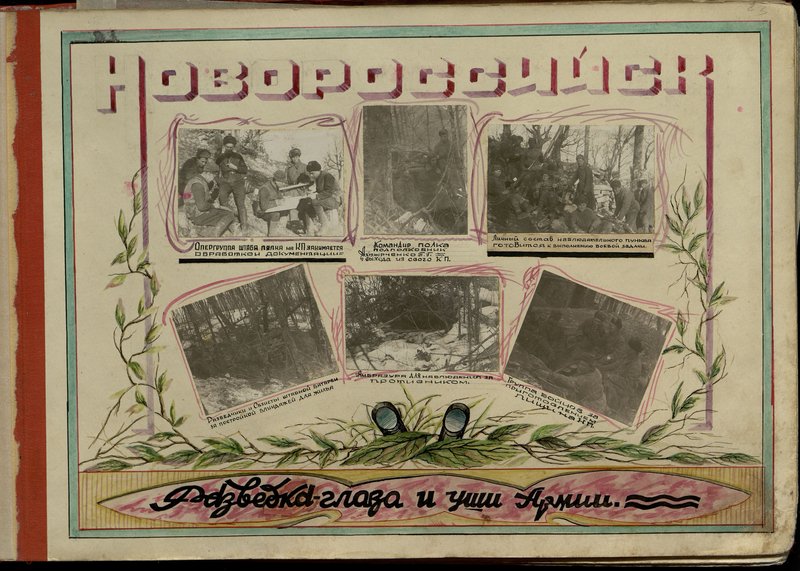 Новороссийск
Опергруппа штаба полка на КП занимается
обработкой документации
Командир полка
подполковник
П.Г.
у выхода из своего К П.
Личный состав наблюдательного пункта
готовится к выполнению боевой задачи.
Разведчики и связисты штабной батареи
за постройкой блиндажей для жилья
Амбразура для наблюдения за
противником.
Группа бойцов за
приготовлением
пищи на КП.
Разведка-глаза и уши Армии.